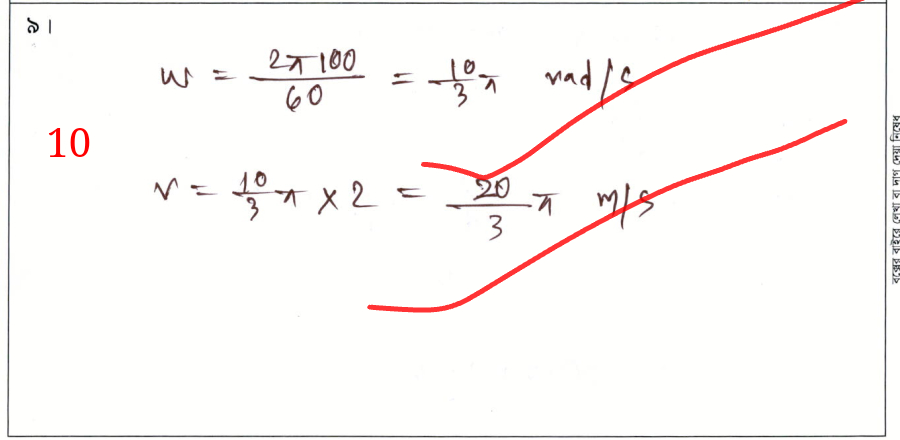 ৯।
w = 2π100/60 = 10/3 π rad/s
10
v = 10/3 π × 2 = 20/3 π m/s
বক্সের বাইরে লেখা বা দাগ দেয়া নিষেধ